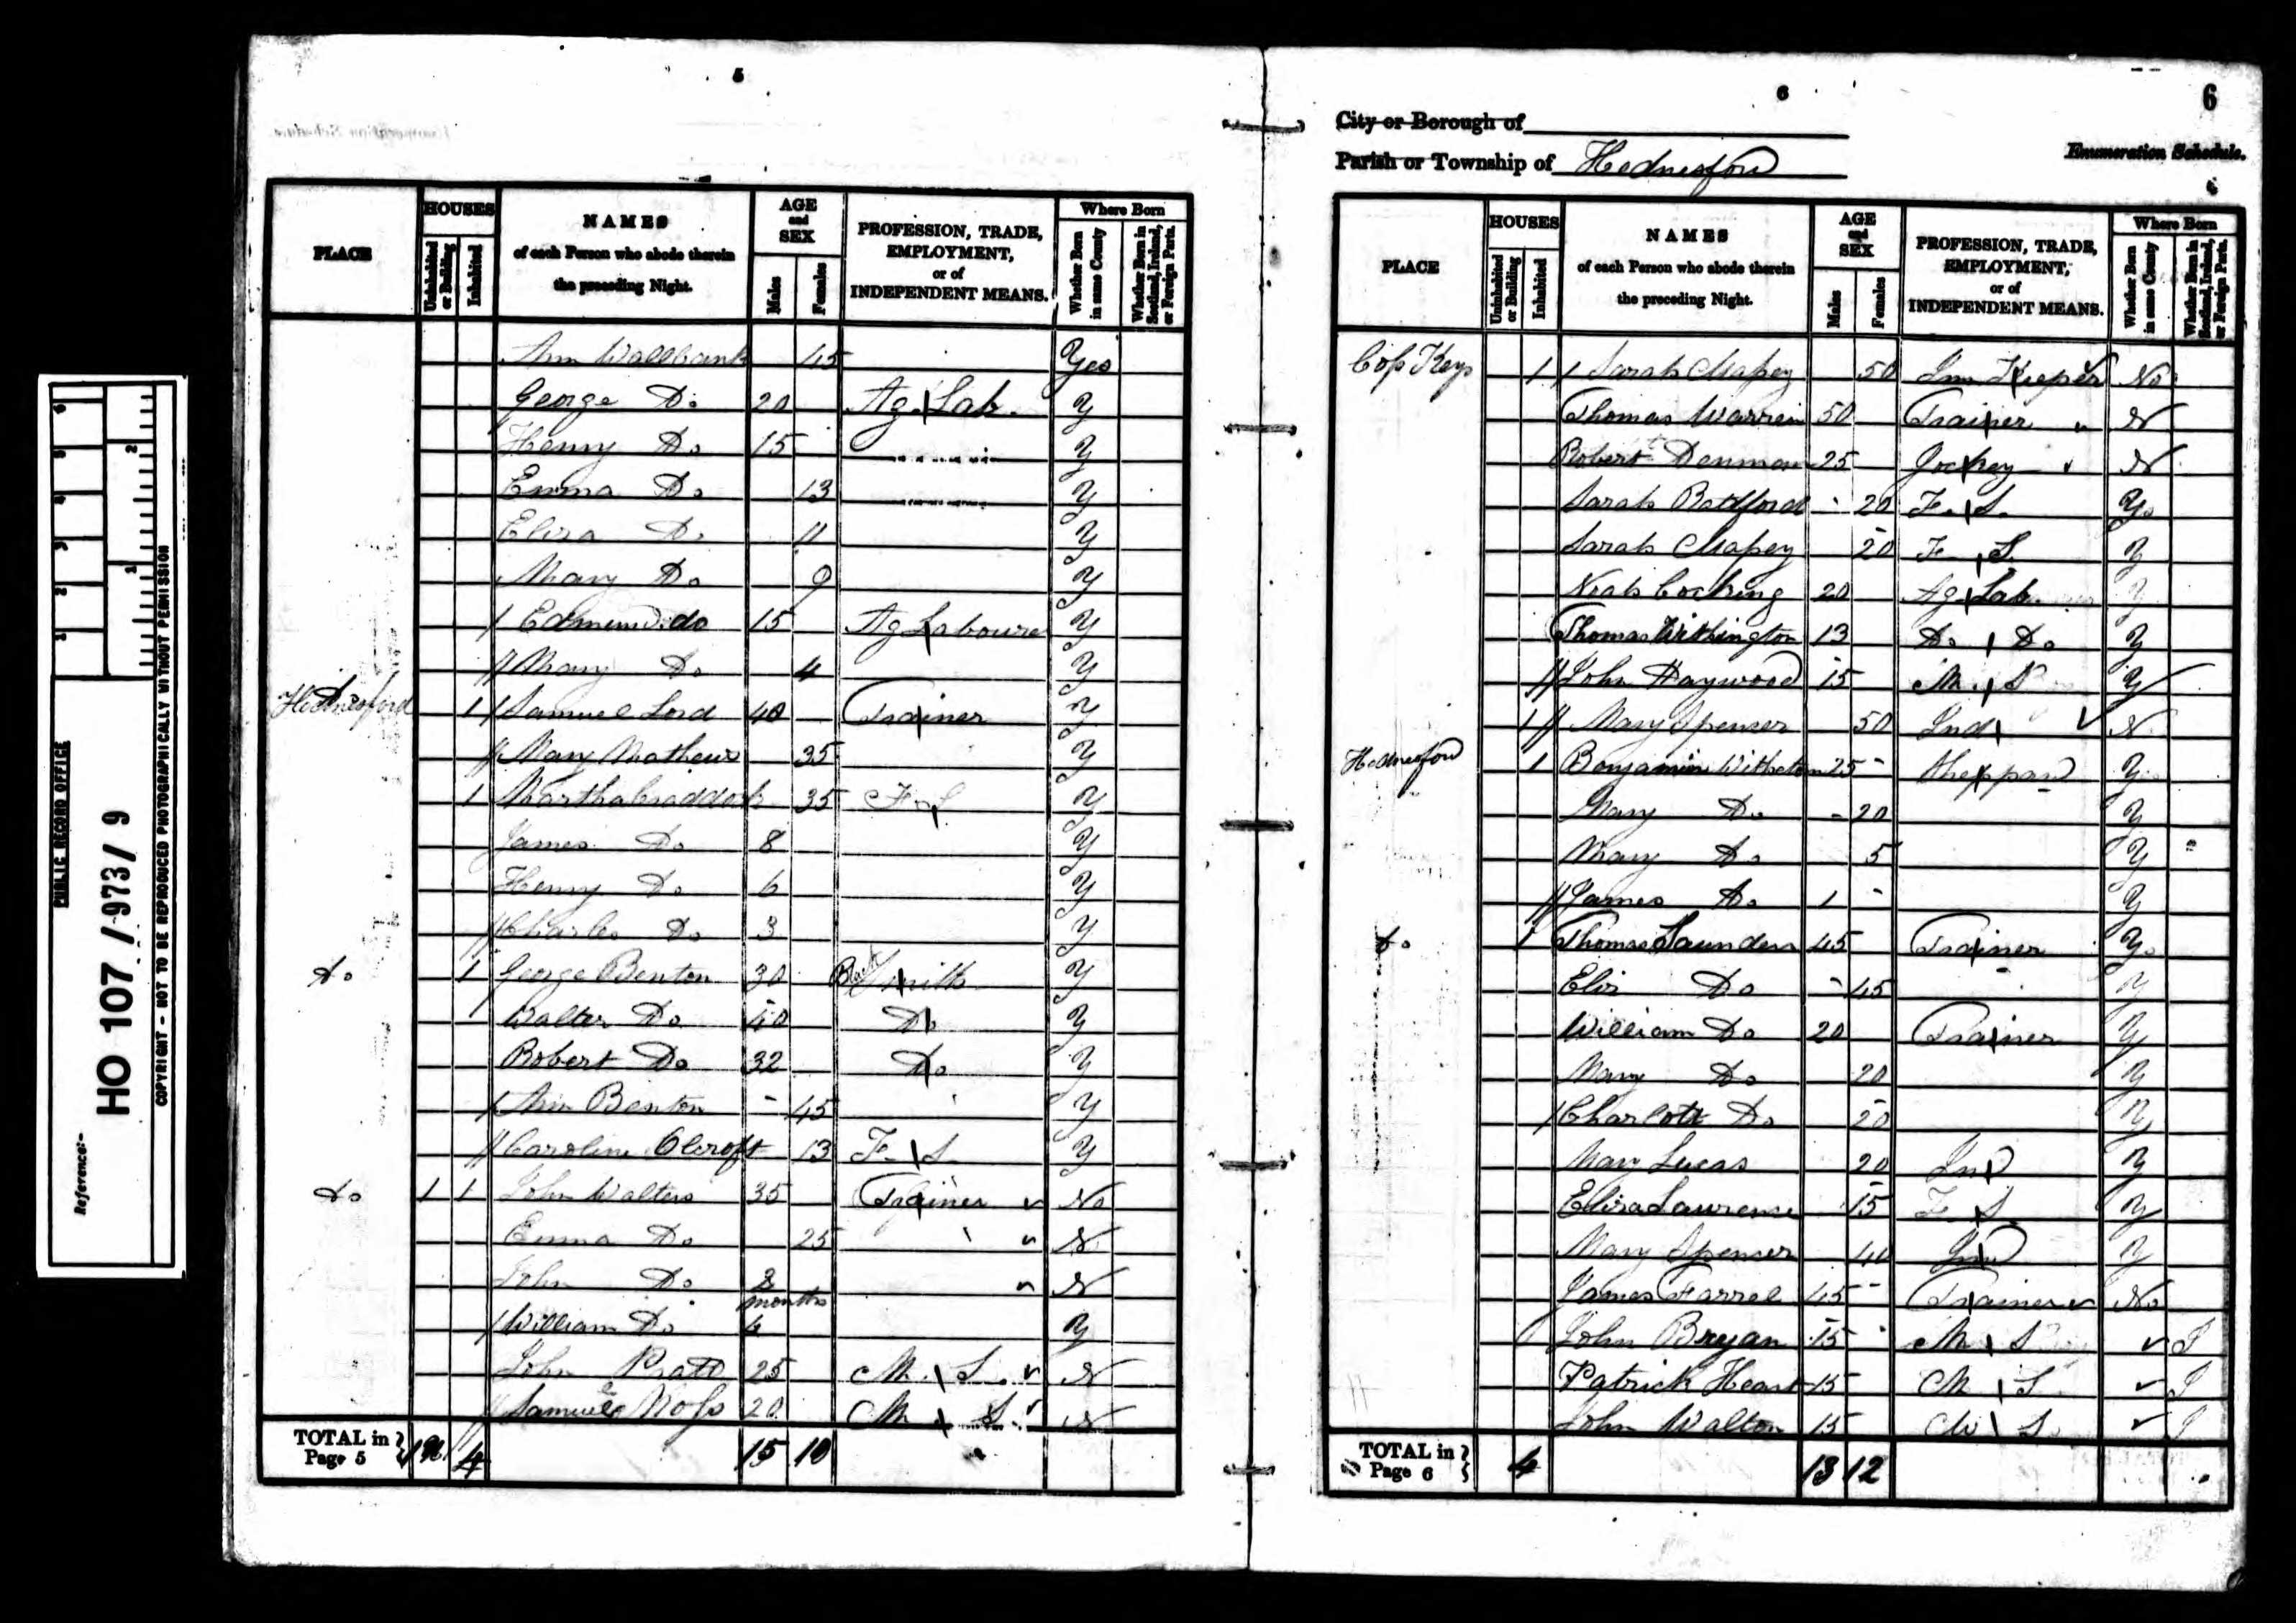 PUBLIC RECORD OFFICE
Reference:-
HO 107 / 973 / 9
COPYRIGHT - NOT TO BE REPRODUCED PHOTOGRAPHICALLY WITHOUT PERMISSION
1 2 3 4 5 6
1 2
5
PLACE HOUSES NAMES AGE and SEX PROFESSION, TRADE, EMPLOYMENT, or of INDEPENDENT MEANS. Where Born
Uninhabited or Building Inhabited of each Person who abode therein the preceding Night. Males Females Whether Born in same County Whether Born in Scotland, Ireland, or Foreign Parts.
Ann Wallbank 45 Yes
George Do 20 Ag. Lab. Y
Henry Do 15 Y
Emma Do 13 Y
Eliza Do 11 Y
Mary Do 9 Y
Edmund do 15 Ag Laboure Y
Mary Do 4 Y
Hednesford 1 Samuel Lord 40 Trainer Y
Mary Mathews 35 Y
1 Martha Craddock 35 F S Y
James Do 8 Y
Henry Do 6 Y
Charles Do 3 Y
do 1 George Benton 30 Black Smith Y
Walter Do 40 Do Y
Robert Do 32 Do Y
Ann Benton 45 Y
Caroline Olcroft 13 F. S Y
do 1 1 John Walters 35 Trainer No
Emma Do 25 N
John Do months N
William Do Y
John Pratt 25 M. S. N
Samuel Moss 20 M. S. N
TOTAL in Page 5 1 4 15 10
6
6
City or Borough of
Parish or Township of Hednesford
Enumeration Schedule.
PLACE HOUSES NAMES AGE and SEX PROFESSION, TRADE, EMPLOYMENT, or of INDEPENDENT MEANS. Where Born
Uninhabited or Building Inhabited of each Person who abode therein the preceding Night. Males Females Whether Born in same County Whether Born in Scotland, Ireland, or Foreign Parts.
Cross Keys 1 Sarah Massey 50 Inn Keeper No
Thomas Warren 50 Trainer N
Robert Denman 25 Jockey N
Sarah 20 F. S. Y
Sarah Massey 20 F. S. Y
Noah Cocking 20 Ag. Lab. Y
Thomas Withington 13 Do Do Y
John Haywood 15 M. S Y
1 Mary Spenser 50 Ind N
Hednesford 1 Benjamin 25 Sheppard Y
Mary Do 20 Y
Mary Do 5 Y
James Do 1 Y
do 1 Thomas Saunders 45 Trainer Y
Eliz Do 45 Y
William Do 20 Trainer Y
Mary Do 20 Y
Charlott Do 20 Y
Mary Lucas 20 Ind Y
Eliza Lawrence 15 F. S Y
Mary Spenser 40 Ind Y
James Farrel 45 Trainer No
John Bryan 15 M. S I
Patrick Heart 15 M. S I
John Walton 15 M. S. I
TOTAL in Page 6 4 13 12